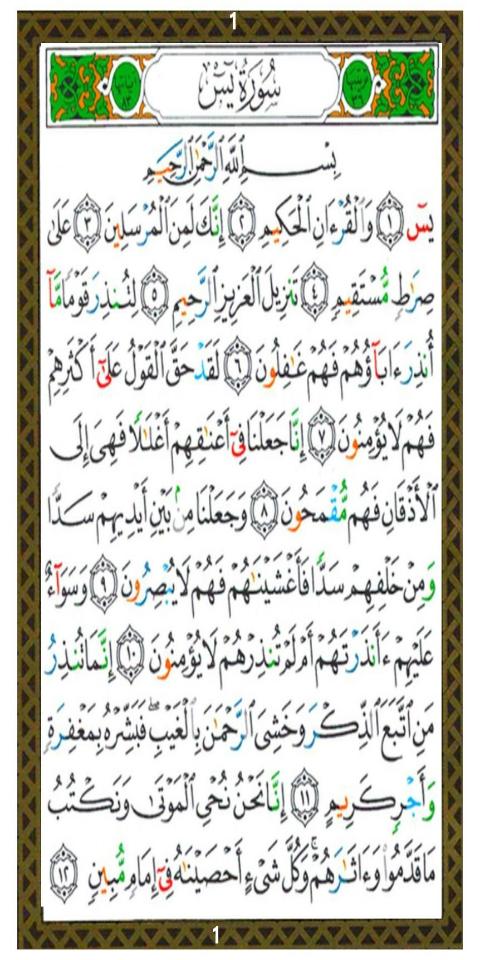 1
سُورَةُ يسٓ
بِسْمِ ٱللَّهِ ٱلرَّحْمَٰنِ ٱلرَّحِيمِ
يسٓ ﴿١﴾ وَٱلْقُرْءَانِ ٱلْحَكِيمِ ﴿٢﴾ إِنَّكَ لَمِنَ ٱلْمُرْسَلِينَ ﴿٣﴾ عَلَىٰ
صِرَٰطٍ مُّسْتَقِيمٍ ﴿٤﴾ تَنزِيلَ ٱلْعَزِيزِ ٱلرَّحِيمِ ﴿٥﴾ لِتُنذِرَ قَوْمًا مَّآ
أُنذِرَ ءَابَآؤُهُمْ فَهُمْ غَٰفِلُونَ ﴿٦﴾ لَقَدْ حَقَّ ٱلْقَوْلُ عَلَىٰٓ أَكْثَرِهِمْ
فَهُمْ لَا يُؤْمِنُونَ ﴿٧﴾ إِنَّا جَعَلْنَا فِىٓ أَعْنَٰقِهِمْ أَغْلَٰلًا فَهِىَ إِلَى
ٱلْأَذْقَانِ فَهُم مُّقْمَحُونَ ﴿٨﴾ وَجَعَلْنَا مِنۢ بَيْنِ أَيْدِيهِمْ سَدًّا
وَمِنْ خَلْفِهِمْ سَدًّا فَأَغْشَيْنَٰهُمْ فَهُمْ لَا يُبْصِرُونَ ﴿٩﴾ وَسَوَآءٌ
عَلَيْهِمْ ءَأَنذَرْتَهُمْ أَمْ لَمْ تُنذِرْهُمْ لَا يُؤْمِنُونَ ﴿١٠﴾ إِنَّمَا تُنذِرُ
مَنِ ٱتَّبَعَ ٱلذِّكْرَ وَخَشِىَ ٱلرَّحْمَٰنَ بِٱلْغَيْبِ ۖ فَبَشِّرْهُ بِمَغْفِرَةٍ
وَأَجْرٍ كَرِيمٍ ﴿١١﴾ إِنَّا نَحْنُ نُحْىِ ٱلْمَوْتَىٰ وَنَكْتُبُ
مَا قَدَّمُوا۟ وَءَاثَٰرَهُمْ ۚ وَكُلَّ شَىْءٍ أَحْصَيْنَٰهُ فِىٓ إِمَامٍ مُّبِينٍ ﴿١٢﴾
1